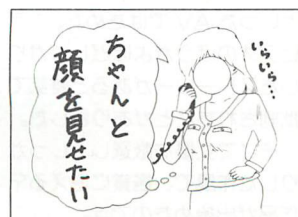 いらいら…
ちゃんと
顔を見せたい